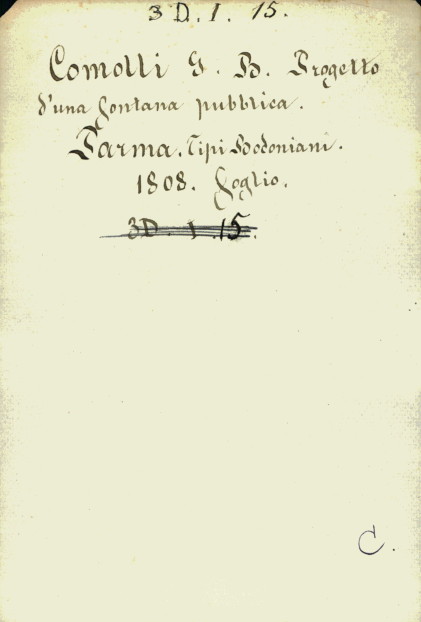 3 D. I. 15.
Comolli G. B. Progetto
d'una fontana pubblica.
Parma. Tipi Bodoniani.
1808. foglio.
3D. I. 15.
C.